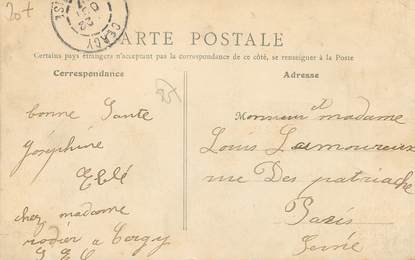 20+
CERGY
OISE
CARTE POSTALE
Certains pays étrangers n'acceptent pas la correspondance de ce côté, se renseigner à la Poste
Correspondance
Adresse
bonne Sante
Joséphine
Eblé
chez madame
rodier a Cergy
S. E. O.
Monsieur et madame
Louis Lamoureux
rue Des patriache
Paris
Seine